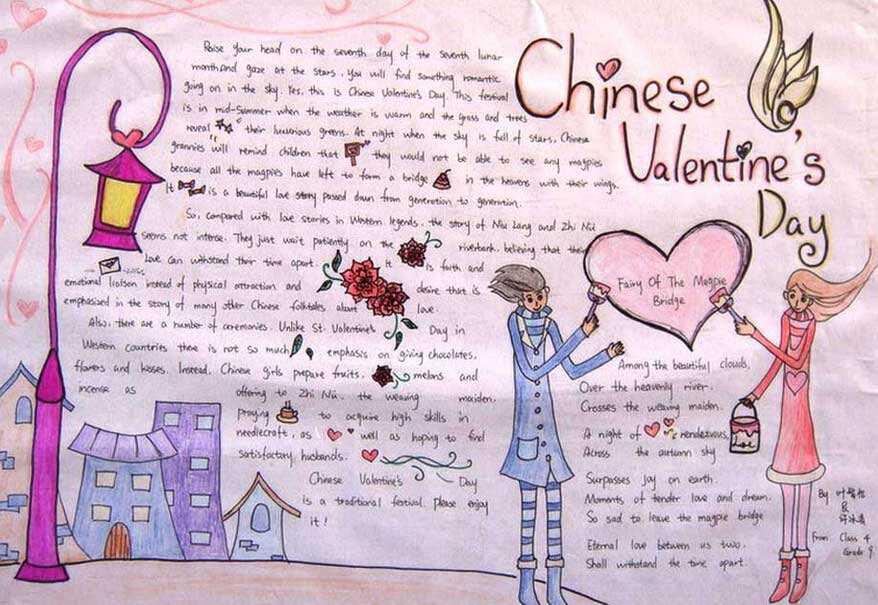 Chinese
Valentine's
Day
Raise your head on the seventh day of the seventh lunar
month and gaze at the stars. You will find something romantic
going on in the sky. Yes, this is Chinese Valentine's Day. This festival
is in mid-Summer when the weather is warm and the grass and trees
reveal their luxurious greens. At night when the sky is full of stars, Chinese
grannies will remind children that they would not be able to see any magpies
because all the magpies have left to form a bridge in the heavens with their wings.
It is a beautiful love story passed down from generation to generation.
So, compared with love stories in Western legends, the story of Niu Lang and Zhi Nü
seems not intense. They just wait patiently on the riverbank, believing that their
Love can withstand their time apart. It is faith and
emotional liaison instead of physical attraction and desire that is
emphasised in the story of many other Chinese folktales about love.
Also, there are a number of ceremonies. Unlike St. Valentine's Day in
Western countries there is not so much emphasis on giving chocolates,
flowers and kisses. Instead, Chinese girls prepare fruits, melons and
incense as offering to Zhi Nü, the weaving maiden,
praying to acquire high skills in
needlecraft, as well as hoping to find
satisfactory husbands.
Chinese Valentine's Day
is a traditional festival. please enjoy
it!
Fairy Of The Magpie
Bridge
Among the beautiful clouds,
Over the heavenly river,
Crosses the weaving maiden.
A night of rendezvous,
Across the autumn sky
Surpasses joy on earth.
Moments of tender love and dream,
So sad to leave the magpie bridge
Eternal love between us two,
Shall withstand the time apart.
By
From Class 4
Grade 9